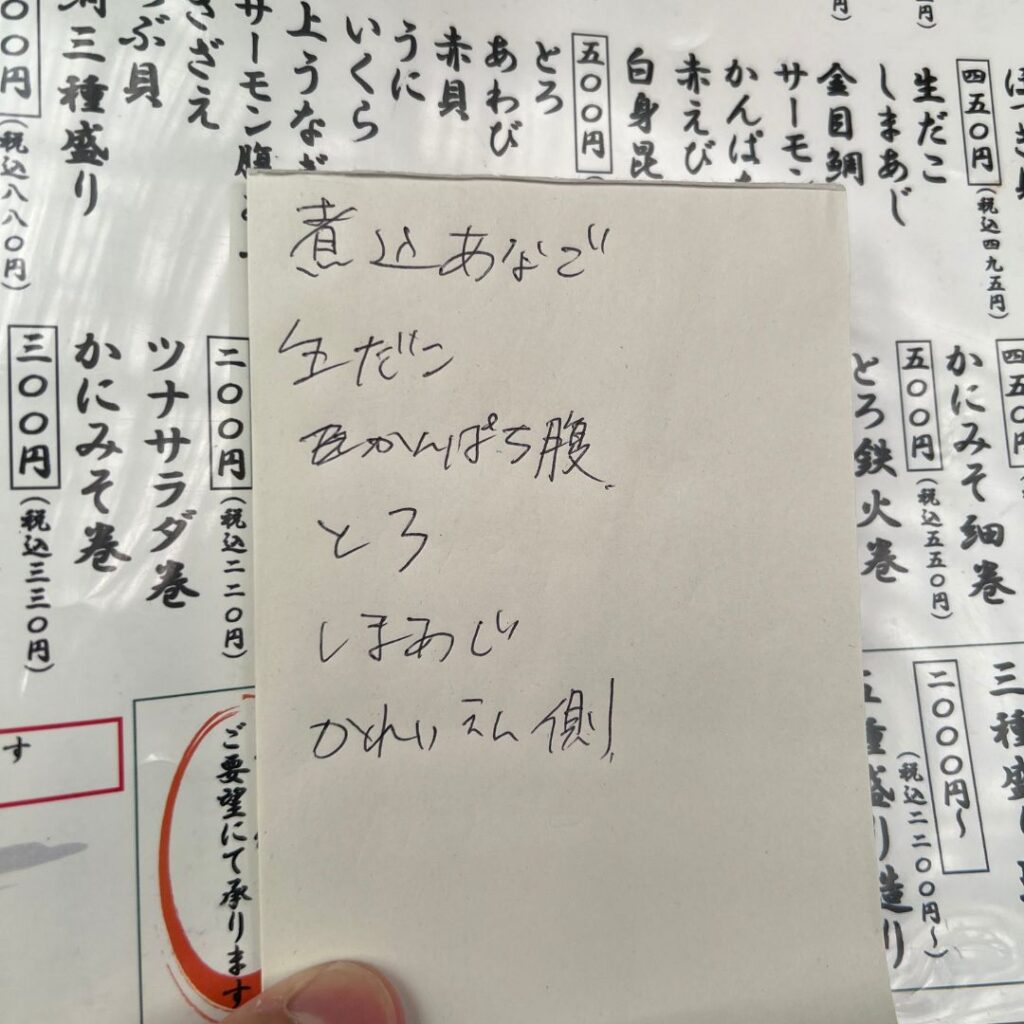 煮込あなご
生だこ
かんぱち腹
とろ
しまあじ
かれいえん側
生だこ
しまあじ
金目鯛
サーモン
かんぱ
赤えび
白身昆
五〇〇円
とろ
あわび
赤貝
うに
いくら
上うなぎ
サーモン腹
さざえ
つぶ貝
三種盛り
(税込八八〇円)
四五〇円
(税込四九五円)
かにみそ細巻
五〇〇円
(税込五五〇円)
とろ鉄火巻
二〇〇円
(税込二二〇円)
ツナサラダ巻
かにみそ巻
三〇〇円
(税込三三〇円)
二〇〇〇円~
(税込二二〇〇円~)
五種盛り造り
ご要望にて承ります
す